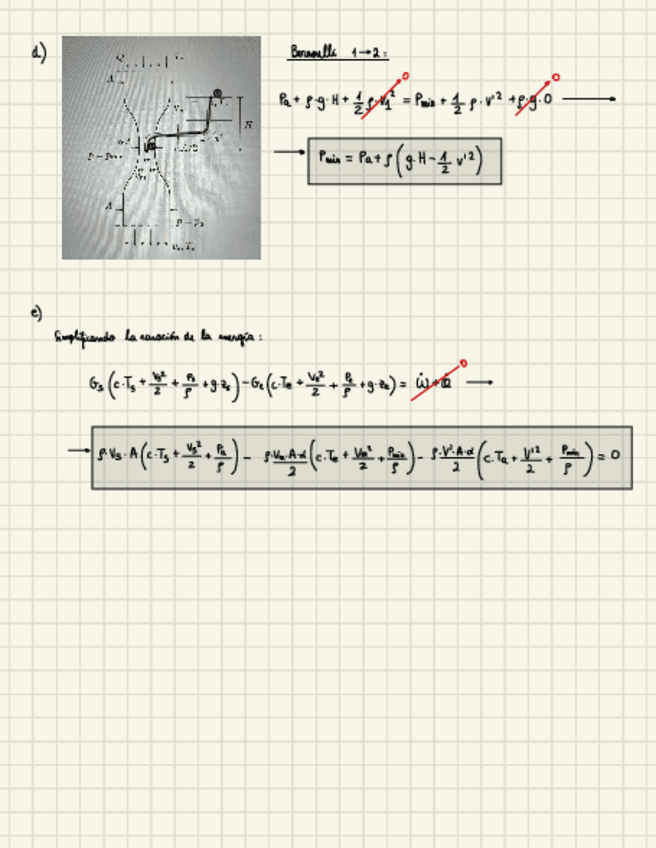 d)
Bernoulli 1→2:
Pa + ρ·g·H + 1/2 ρ·V₁² = Pmin + 1/2 ρ·V'² + ρ·g·0 →
→ Pmin = Pa + ρ(g·H - 1/2 V'²)
e)
Simplificando la ecuación de la energía:
Gs(c·Ts + Vs²/2 + Ps/ρ + g·zs) - Ge(c·Te + Ve²/2 + Pe/ρ + g·ze) = Ẇ + Q̇ 0 →
→ ρ·Vs·A(c·Ts + Vs²/2 + Pa/ρ) - ρ·Vm·A·α/2 (c·Te + Vm²/2 + Pmin/ρ) - ρ·V'·A·α/2 (c·Ta + V'²/2 + Pmin/ρ) = 0